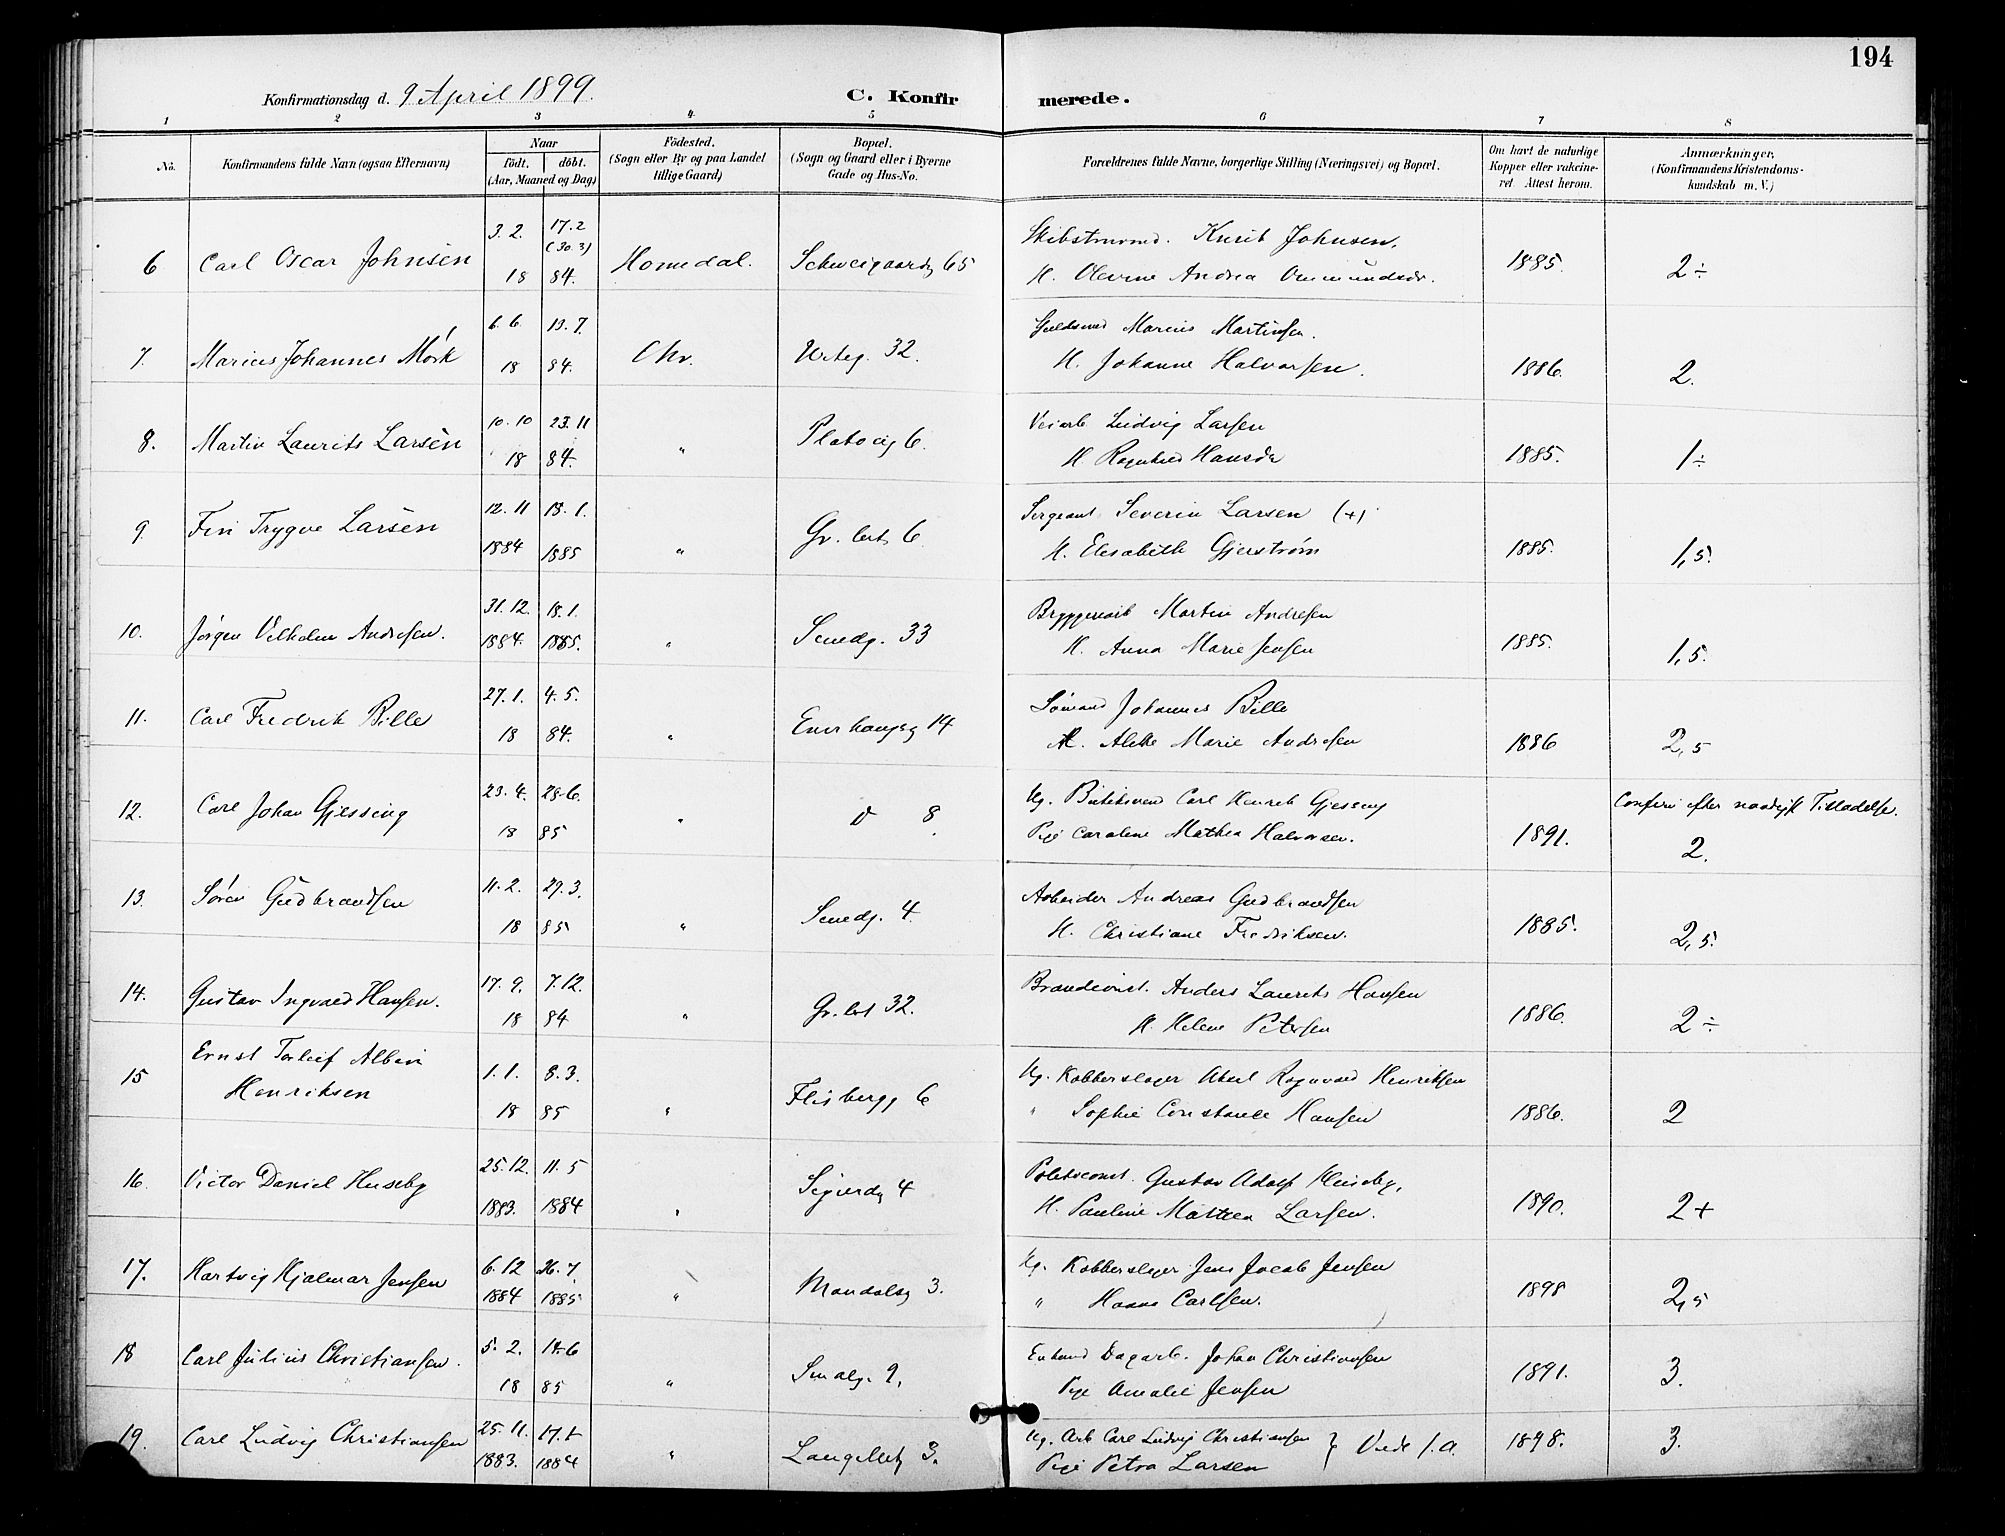 194
Konfirmationsdag d. 9 April 1899. C. Konfirmerede.
1 2 3 4 5 6 7 8
No. Konfirmandens fulde Navn (ogsaa Efternavn) Naar født. døbt. (Aar, Maaned og Dag) Fødested. (Sogn eller By og paa Landet tillige Gaard) Bopæl. (Sogn og Gaard eller i Byerne Gade og Hus-No. Forældrenes fulde Navne, borgerlige Stilling (Næringsvei) og Bopæl. Om havt de naturlige Kopper eller vakcineret. Attest herom. Anmærkninger, (Konfirmandens Kristendomskundskab m. V.)
3.2. 17.2 (30.3) Knut Johnsen,
6 Carl Oscar Johnsen 18 84. Homedal. Schweigaardg 65 H. Olevine Andrea Ommundsdr. 1885. 2÷
6.6. 13.7. Guldsmed Marius Martinsen.
7. Marius Johannes Mørk 18 84. Chr. Urteg. 32. H. Johanne Halvorsen. 1886. 2.
10.10 23.11 Veiarb. Ludvig Larsen
8. Martin Laurits Larsen 18 84. " Platoug 6. H. Ragnhild Hansdr 1885. 1÷
12.11 13.1. Sergeant Severin Larsen (+)
9. Fin Trygve Larsen 1884 1885 " Gr. lert 6 H. Elisabeth Gjerstrøm 1885. 1,5.
31.12. 18.1. Bryggeriarb Martin Andresen
10. Jørgen Vilhelm Andresen. 1884. 1885. " Smedg. 33 H. Anna Marie Jensen 1885. 1,5.
27.1. 4.5. Sømand Johannes Bille
11. Carl Fredrik Bille 18 84. " Enerhaugsg 14 H. Alette Marie Andresen 1886 2,5
23.4. 28.6. Ug. Carl Henrik Gjessing Confirm efter naadigst Tilladelse.
12. Carl Johan Gjessing 18 85 " 8. Pige Caroline Mathea Halvorsen. 1891. 2.
11.2. 29.3. Arbeider Andreas Gudbrandsen
13. Søren Gudbrandsen 18 85 " Smedg. 4. H. Christiane Fredriksen. 1885. 2,5.
17.9. 7.12. Brandconst. Anders Laurits Hansen
14. Gustav Ingvald Hansen. 18 84 " Gr. lert 32. H. Helene Petersen 1886. 2÷
Ernst Torleif Albin 1.1. 8.3. Ug. Kobberslager Axel Ragnvald Henriksen
15 Henriksen 18 85 " Flisbergg 6 " Sophie Constance Hansen 1886. 2
25.12. 11.5 Politiconst. Gustav Adolf Huseby,
16. Victor Daniel Huseby 1883. 1884 " Sigurdg 4 H. Pauline Mathea Larsen. 1890. 2+
6.12 26.7. Ug. Kobberslager Jens Jacob Jensen
17. Hartvig Hjalmar Jensen 1884 1885 " Mandalsg 3. " Hanna Carlsen. 1898 2,5
5.2. 14.6 Enkemd Dagarb. Johan Christiansen
18 Carl Julius Christiansen. 18 85 " Smalg. 9. Pige Amalie Jensen 1891. 3.
25.11. Ug. Arb Carl Ludvig Christiansen
19. Carl Ludvig Christiansen 1883. 1884 " 3. Pige Petra Larsen 1898. 3.